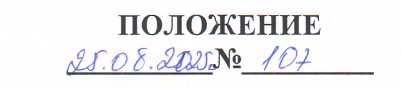 ПОЛОЖЕНИЕ
25.08.2025.№ 107